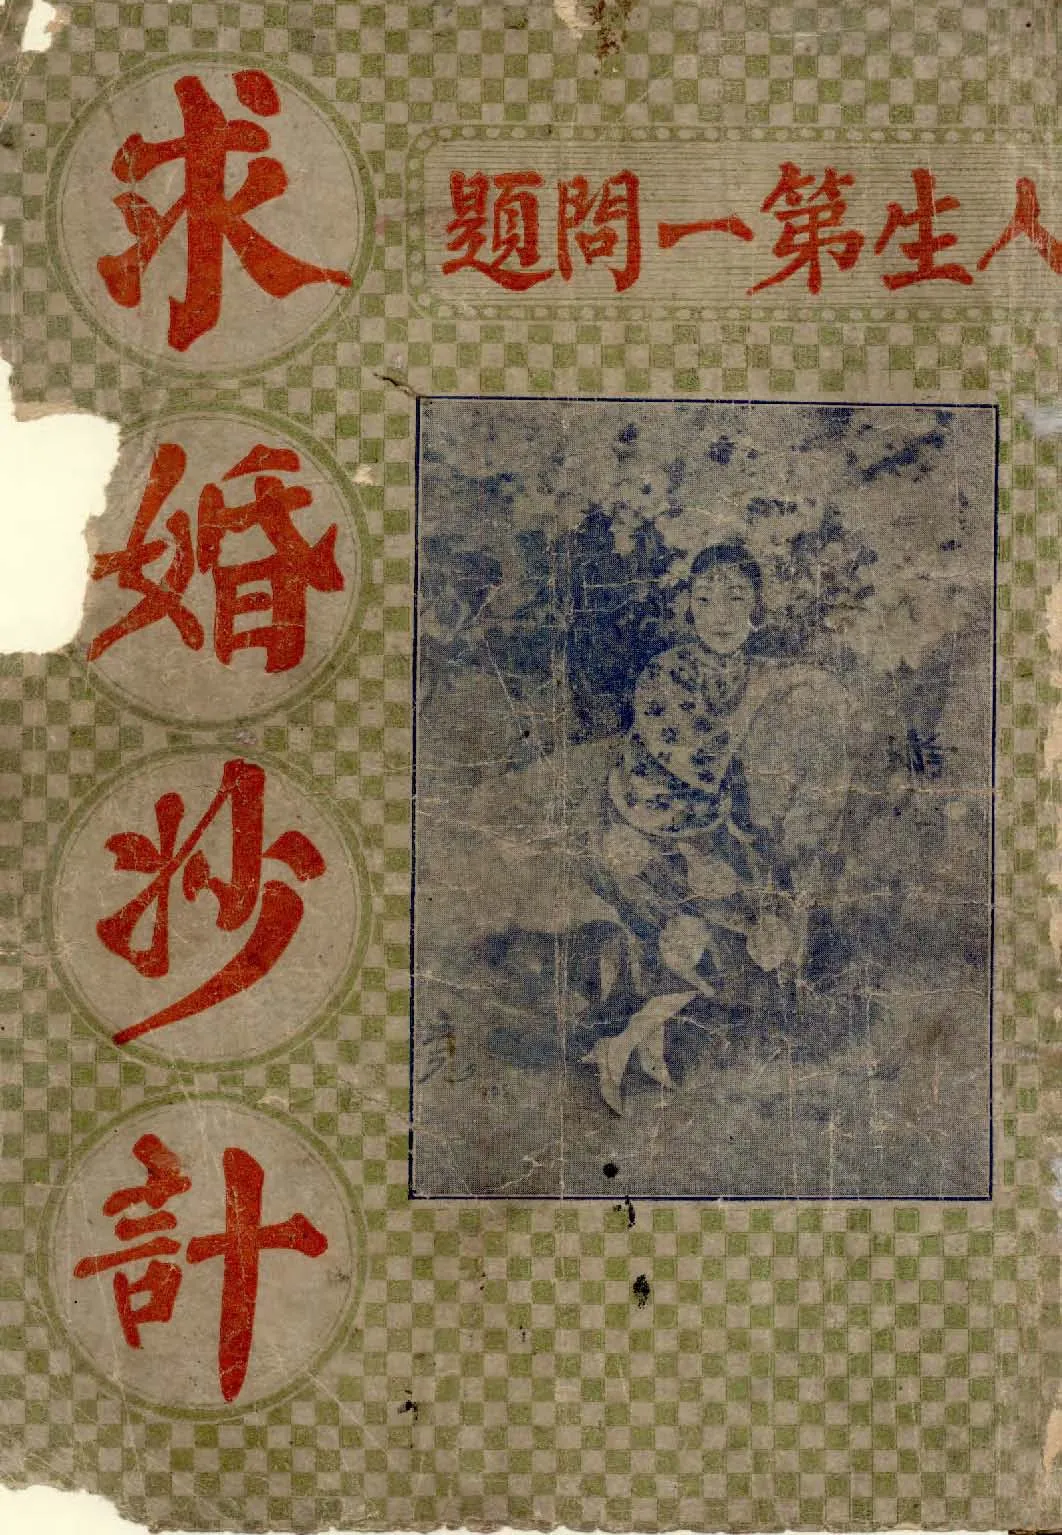 人生第一問題
求婚妙計